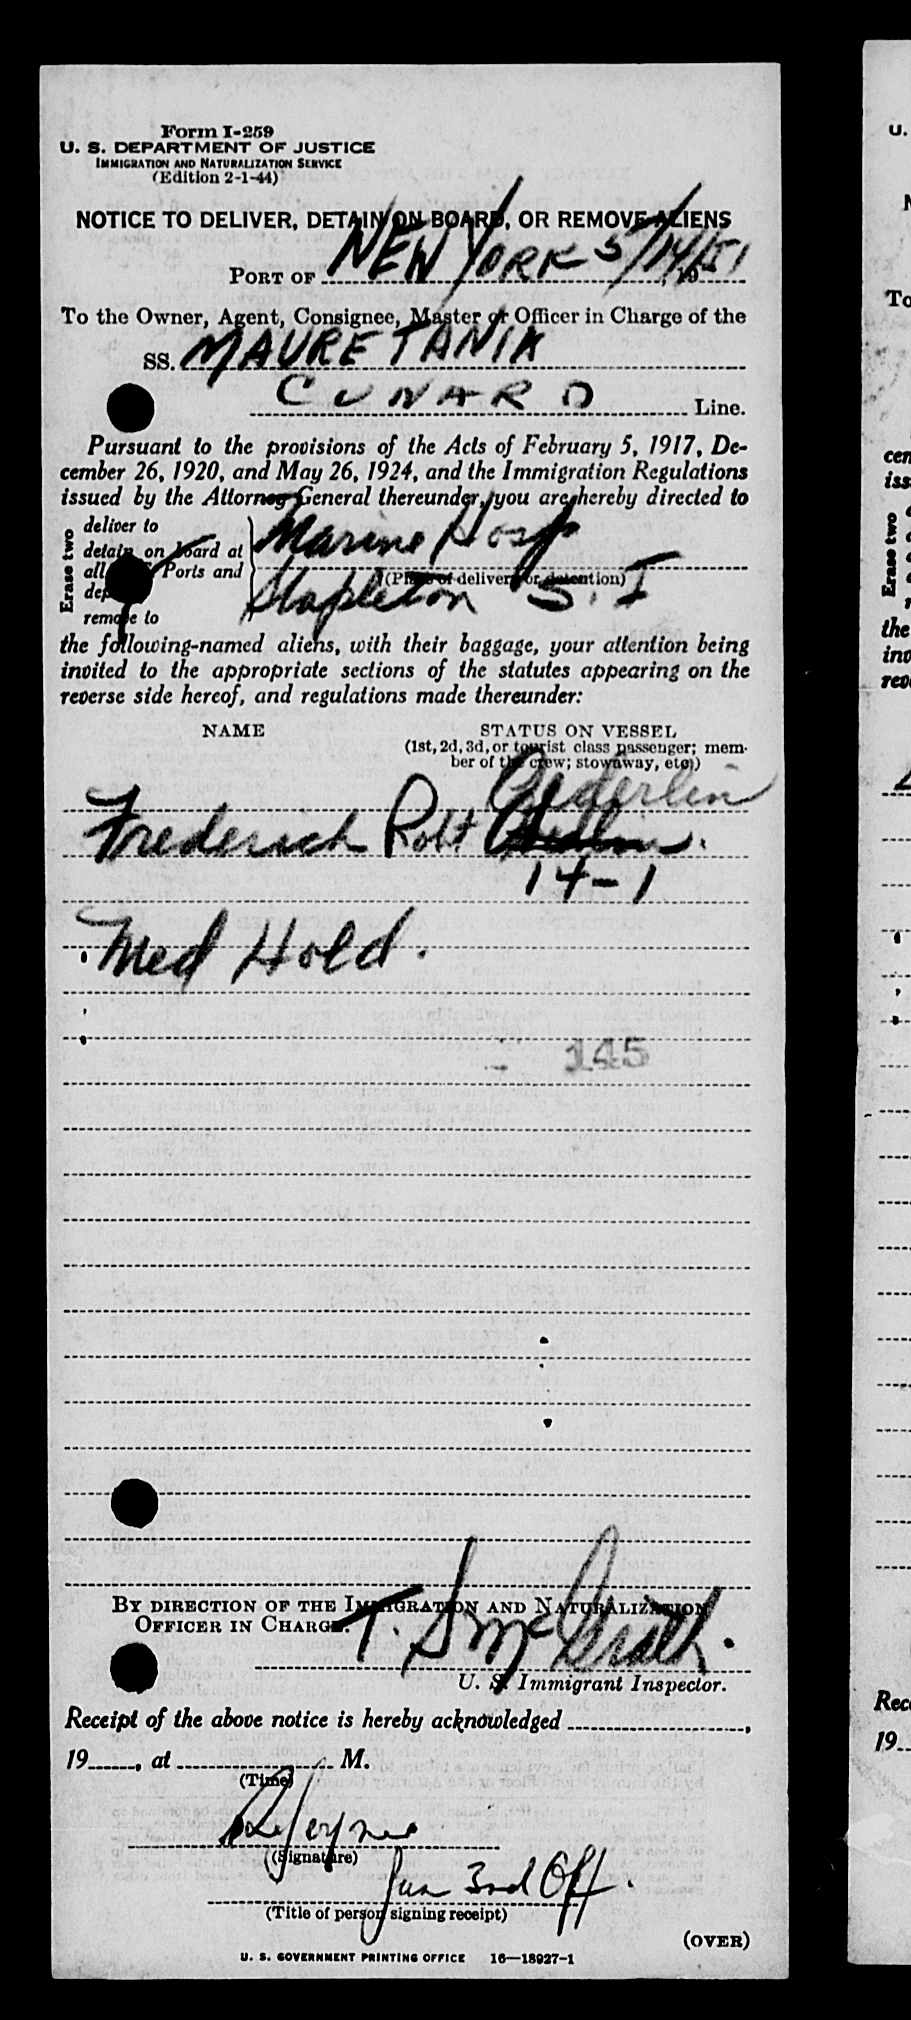 Form I-259
U. S. DEPARTMENT OF JUSTICE
IMMIGRATION AND NATURALIZATION SERVICE
(Edition 2-1-44)
NOTICE TO DELIVER, DETAIN ON BOARD, OR REMOVE ALIENS
PORT OF NEW YORK 5/14/51, 19
To the Owner, Agent, Consignee, Master or Officer in Charge of the
SS. MAURETANIA
CUNARD Line.
Pursuant to the provisions of the Acts of February 5, 1917, De-
cember 26, 1920, and May 26, 1924, and the Immigration Regulations
issued by the Attorney General thereunder, you are hereby directed to
Erase two
deliver to
detain on board at
all Ports and
remove to
Marine Hosp
(Place of delivery or detention)
Stapleton S. I
the following-named aliens, with their baggage, your attention being
invited to the appropriate sections of the statutes appearing on the
reverse side hereof, and regulations made thereunder:
NAME STATUS ON VESSEL
(1st, 2d, 3d, or tourist class passenger; mem-
ber of the crew; stowaway, etc.)
Oederlin
Frederick Robt
14-1
Med Hold.
145
BY DIRECTION OF THE IMMIGRATION AND NATURALIZATION
OFFICER IN CHARGE.
T.
U. S. Immigrant Inspector.
Receipt of the above notice is hereby acknowledged ,
19 , at M.
(Time)
(Signature)
Jun 3rd Off.
(Title of person signing receipt)
(OVER)
U. S. GOVERNMENT PRINTING OFFICE 16—18927-1
U.
To
cen
iss
Erase two
the
inv
reve
Rece
19